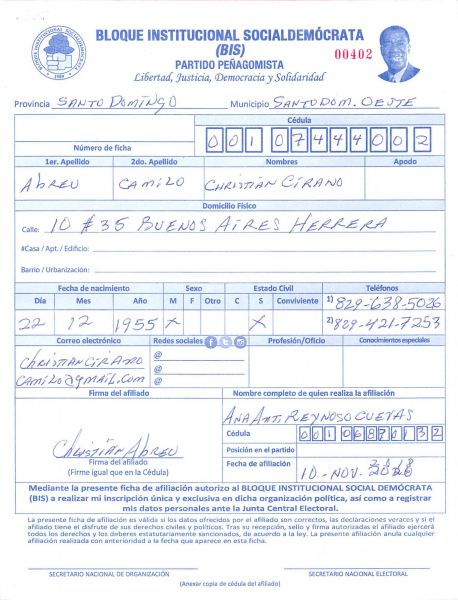 BLOQUE INSTITUCIONAL SOCIALDEMÓCRATA
(BIS)
PARTIDO PEÑAGOMISTA
Libertad, Justicia, Democracia y Solidaridad
00402
Provincia SANTO DOMINGO Municipio SANTO DOM. OESTE
Cédula
Número de ficha 0 0 1 0 7 4 4 4 0 0 2
1er. Apellido 2do. Apellido Nombres Apodo
Abreu CAMILO CHRISTIAN CIRANO
Domicilio Físico
Calle: 10 #35 BUENOS AIRES HERRERA
#Casa / Apt. / Edificio:
Barrio / Urbanización:
Fecha de nacimiento Sexo Estado Civil Teléfonos
Día Mes Año M F Otro C S Conviviente 1) 829-638-5026
22 12 1955 X X 2) 829-421-7253
Correo electrónico Redes sociales Profesión/Oficio Conocimientos especiales
CHRISTIAN CIRANO @
CAMILO@gmail.com @
@
Firma del afiliado Nombre completo de quien realiza la afiliación
ANA ANT. REYNOSO CUEVAS
Cédula 0 0 1 0 6 8 7 0 1 3 2
Christian Abreu Posición en el partido
Firma del afiliado Fecha de afiliación 10-NOV.
(Firme igual que en la Cédula)
Mediante la presente ficha de afiliación autorizo al BLOQUE INSTITUCIONAL SOCIAL DEMÓCRATA
(BIS) a realizar mi inscripción única y exclusiva en dicha organización política, así como a registrar
mis datos personales ante la Junta Central Electoral.
La presente ficha de afiliación es válida si los datos ofrecidos por el afiliado son correctos, las declaraciones veraces y si el
afiliado tiene el disfrute de sus derechos civiles y políticos. Tras su recepción, sello y firma autorizadas el afiliado ejercerá
todos los derechos y los deberes estatutariamente sancionados, de acuerdo a la ley. La presente afiliación anula cualquier
afiliación realizada con anterioridad a la fecha que aparece en esta ficha.
SECRETARIO NACIONAL DE ORGANIZACIÓN SECRETARIO NACIONAL ELECTORAL
(Anexar copia de cédula del afiliado)